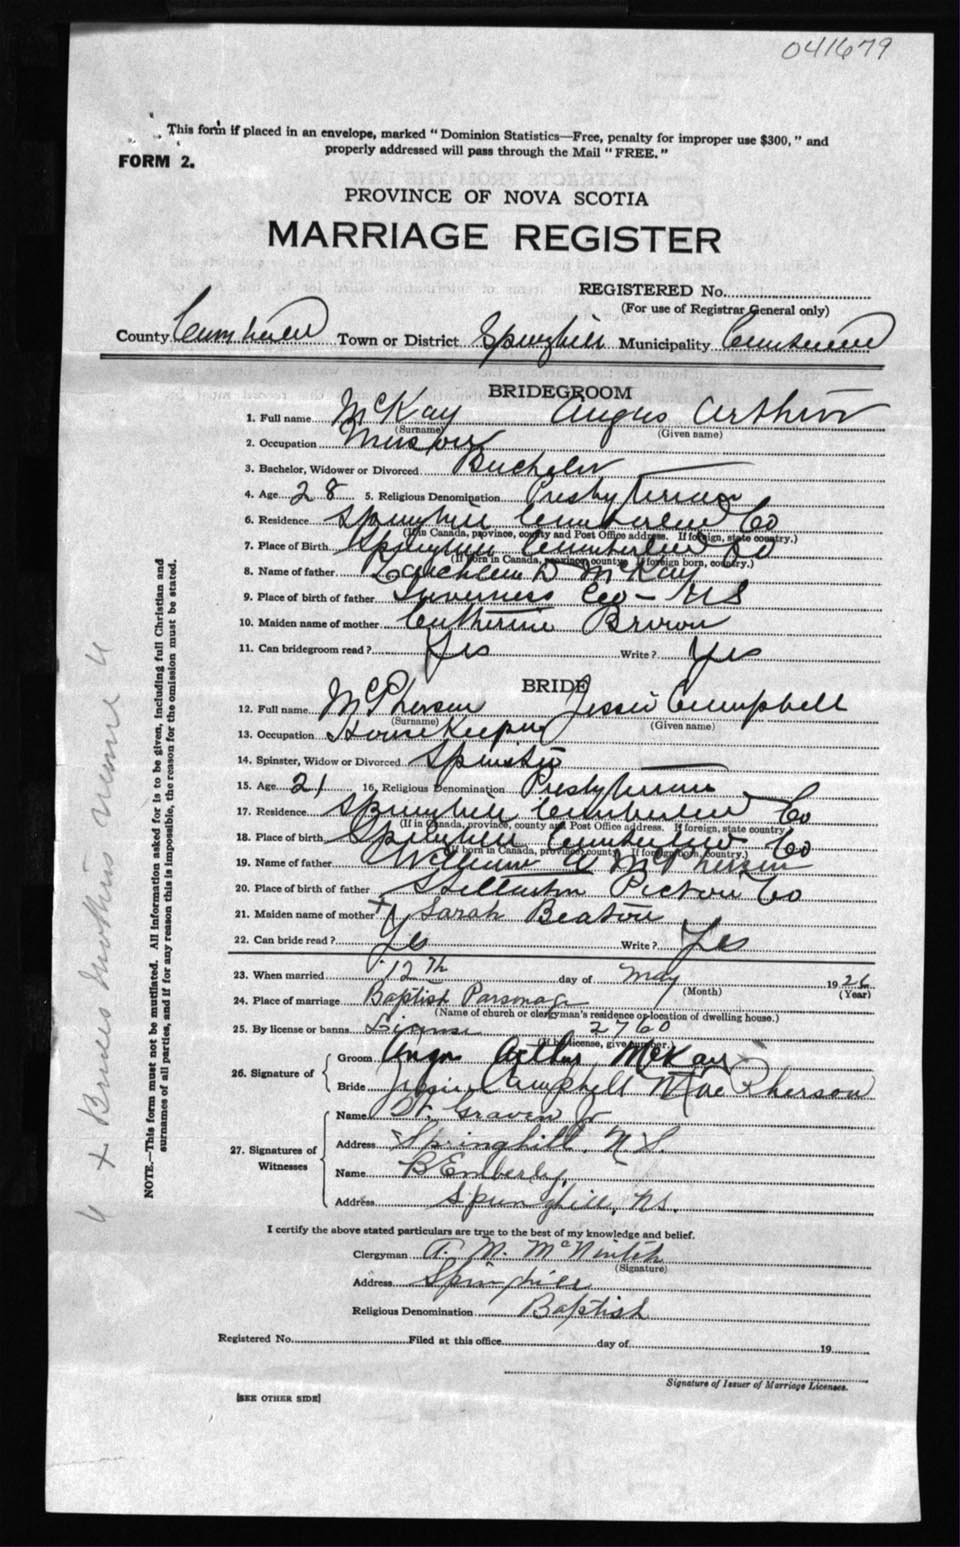 041679
This form if placed in an envelope, marked "Dominion Statistics—Free, penalty for improper use $300," and
properly addressed will pass through the Mail "FREE."
FORM 2.
PROVINCE OF NOVA SCOTIA
MARRIAGE REGISTER
REGISTERED No.
(For use of Registrar General only)
County Cumberland Town or District Springhill Municipality Cumberland
BRIDEGROOM
1. Full name McKay Angus Arthur
(Surname) (Given name)
2. Occupation
3. Bachelor, Widower or Divorced Bachelor
4. Age 28 5. Religious Denomination Presbyterian
6. Residence Springhill Cumberland Co
(If in Canada, province, county and Post Office address. If foreign, state country.)
7. Place of Birth Springhill Cumberland Co
(If born in Canada, province, county; if foreign born, country.)
8. Name of father Lauchlin D McKay
9. Place of birth of father Inverness Co - NS
10. Maiden name of mother Catherine Brown
11. Can bridegroom read? Yes Write? Yes
BRIDE
12. Full name McPherson Jessie Campbell
(Surname) (Given name)
13. Occupation Housekeeping
14. Spinster, Widow or Divorced Spinster
15. Age 21 16. Religious Denomination Presbyterian
17. Residence Springhill Cumberland Co
(If in Canada, province, county and Post Office address. If foreign, state country
18. Place of birth Springhill Cumberland Co
(If born in Canada, province, county; If foreign born, country.)
19. Name of father William McPherson
20. Place of birth of father Stellarton Pictou Co
21. Maiden name of mother + Sarah Beaton
22. Can bride read? Yes Write? Yes
23. When married 12th day of May 1926
(Month) (Year)
24. Place of marriage Baptish Parsonage
(Name of church or clergyman's residence or location of dwelling house.)
25. By license or banns License 2760
(If by license, give number.)
26. Signature of { Groom Angus Arthur McKay
Bride Jessie Campbell MacPherson
27. Signatures of Witnesses { Name Graven Jr
Address Springhill, N.S.
Name B Emberly,
Address Springhill, NS.
I certify the above stated particulars are true to the best of my knowledge and belief.
Clergyman A. M. McNintch
(Signature)
Address Springhill
Religious Denomination Baptish
Registered No. Filed at this office day of 19
Signature of Issuer of Marriage Licenses.
[SEE OTHER SIDE]
NOTE.—This form must not be mutilated. All information asked for is to be given, including full Christian and
surnames of all parties, and if for any reason this is impossible, the reason for the omission must be stated.
" + Brides mothers name "